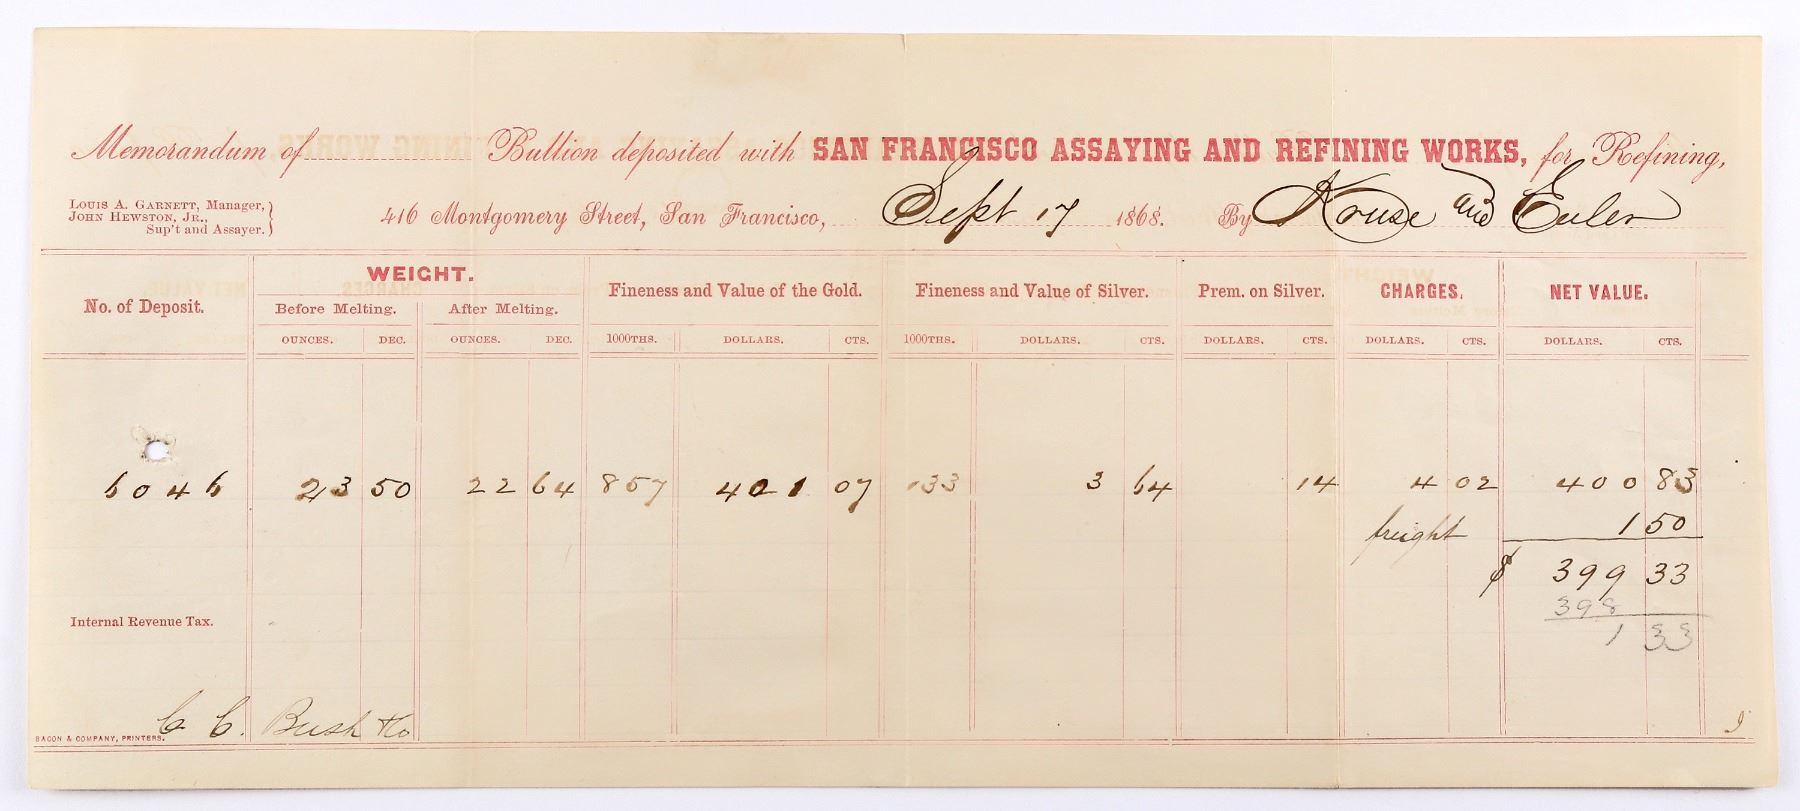 Memorandum of Bullion deposited with SAN FRANCISCO ASSAYING AND REFINING WORKS, for Refining,
LOUIS A. GARNETT, Manager,
JOHN HEWSTON, JR.,
Sup't and Assayer.
416 Montgomery Street, San Francisco, Sept 17 1868. By Kruse and Euler
No. of Deposit. WEIGHT. Fineness and Value of the Gold. Fineness and Value of Silver. Prem. on Silver. CHARGES. NET VALUE.
Before Melting. After Melting.
OUNCES. DEC. OUNCES. DEC. 1000THS. DOLLARS. CTS. 1000THS. DOLLARS. CTS. DOLLARS. CTS. DOLLARS. CTS. DOLLARS. CTS.
6046 23 50 22 64 857 401 07 133 3 64 14 4 02 400 83
freight 1 50
$ 399 33
398
1 33
Internal Revenue Tax.
C C. Bush & Co
BACON & COMPANY, PRINTERS.